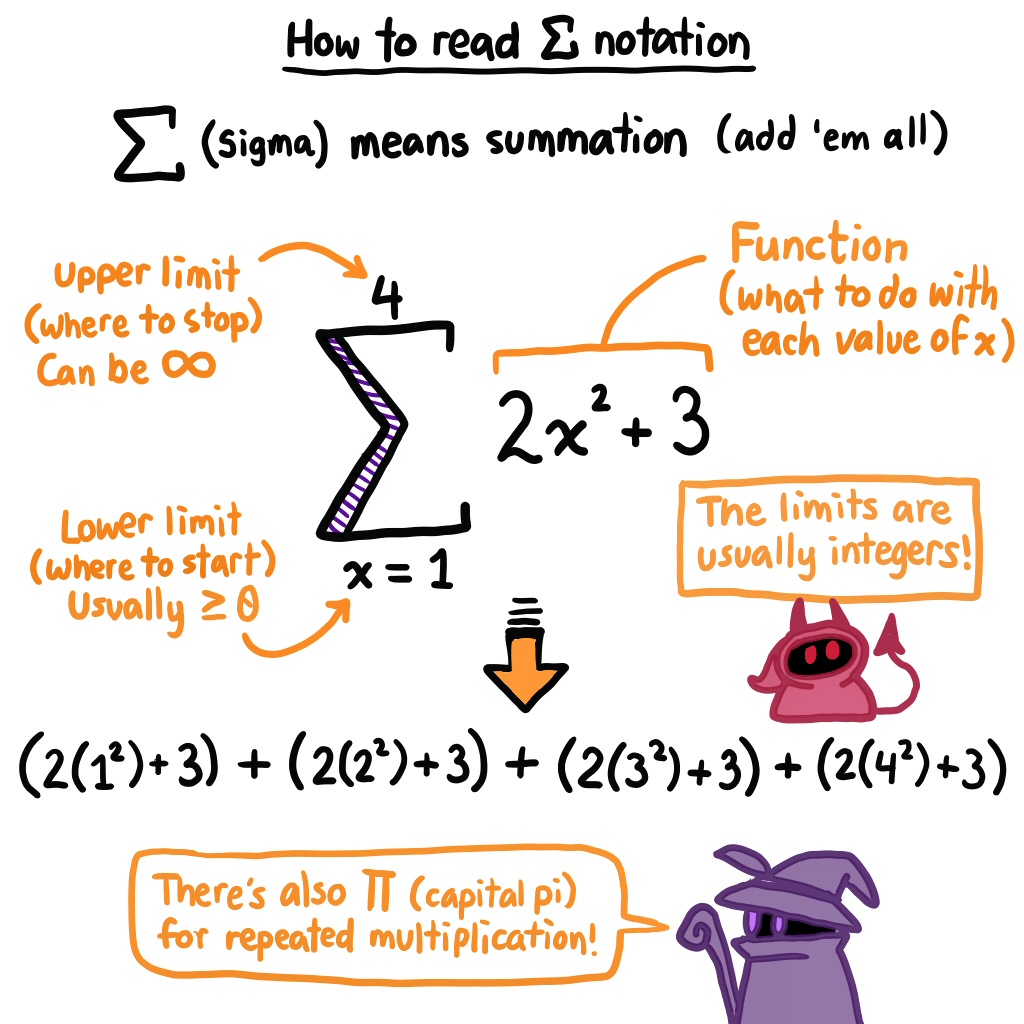 How to read Σ notation
Σ (Sigma) means summation (add 'em all)
Upper limit
(where to stop)
Can be ∞
4
Function
(what to do with
each value of x)
Σ 2x² + 3
Lower limit
(where to start)
Usually ≥ 0
x = 1
The limits are
usually integers!
(2(1²)+3) + (2(2²)+3) + (2(3²)+3) + (2(4²)+3)
There's also Π (capital pi)
for repeated multiplication!